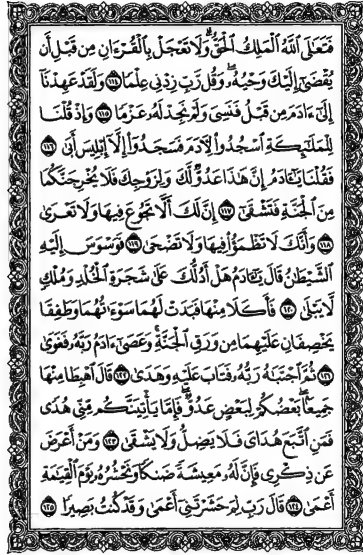 فَتَعَٰلَى ٱللَّهُ ٱلْمَلِكُ ٱلْحَقُّ ۗ وَلَا تَعْجَلْ بِٱلْقُرْءَانِ مِن قَبْلِ أَن
يُقْضَىٰٓ إِلَيْكَ وَحْيُهُۥ ۖ وَقُل رَّبِّ زِدْنِى عِلْمًا ١١٤ وَلَقَدْ عَهِدْنَآ
إِلَىٰٓ ءَادَمَ مِن قَبْلُ فَنَسِىَ وَلَمْ نَجِدْ لَهُۥ عَزْمًا ١١٥ وَإِذْ قُلْنَا
لِلْمَلَٰٓئِكَةِ ٱسْجُدُوا۟ لِءَادَمَ فَسَجَدُوٓا۟ إِلَّآ إِبْلِيسَ أَبَىٰ ١١٦
فَقُلْنَا يَٰٓـَٔادَمُ إِنَّ هَٰذَا عَدُوٌّ لَّكَ وَلِزَوْجِكَ فَلَا يُخْرِجَنَّكُمَا
مِنَ ٱلْجَنَّةِ فَتَشْقَىٰٓ ١١٧ إِنَّ لَكَ أَلَّا تَجُوعَ فِيهَا وَلَا تَعْرَىٰ
١١٨ وَأَنَّكَ لَا تَظْمَؤُا۟ فِيهَا وَلَا تَضْحَىٰ ١١٩ فَوَسْوَسَ إِلَيْهِ
ٱلشَّيْطَٰنُ قَالَ يَٰٓـَٔادَمُ هَلْ أَدُلُّكَ عَلَىٰ شَجَرَةِ ٱلْخُلْدِ وَمُلْكٍ
لَّا يَبْلَىٰ ١٢٠ فَأَكَلَا مِنْهَا فَبَدَتْ لَهُمَا سَوْءَٰتُهُمَا وَطَفِقَا
يَخْصِفَانِ عَلَيْهِمَا مِن وَرَقِ ٱلْجَنَّةِ ۚ وَعَصَىٰٓ ءَادَمُ رَبَّهُۥ فَغَوَىٰ
١٢١ ثُمَّ ٱجْتَبَٰهُ رَبُّهُۥ فَتَابَ عَلَيْهِ وَهَدَىٰ ١٢٢ قَالَ ٱهْبِطَا مِنْهَا
جَمِيعًۢا ۖ بَعْضُكُمْ لِبَعْضٍ عَدُوٌّ ۖ فَإِمَّا يَأْتِيَنَّكُم مِّنِّى هُدًى
فَمَنِ ٱتَّبَعَ هُدَاىَ فَلَا يَضِلُّ وَلَا يَشْقَىٰ ١٢٣ وَمَنْ أَعْرَضَ
عَن ذِكْرِى فَإِنَّ لَهُۥ مَعِيشَةً ضَنكًا وَنَحْشُرُهُۥ يَوْمَ ٱلْقِيَٰمَةِ
أَعْمَىٰ ١٢٤ قَالَ رَبِّ لِمَ حَشَرْتَنِىٓ أَعْمَىٰ وَقَدْ كُنتُ بَصِيرًا ١٢٥